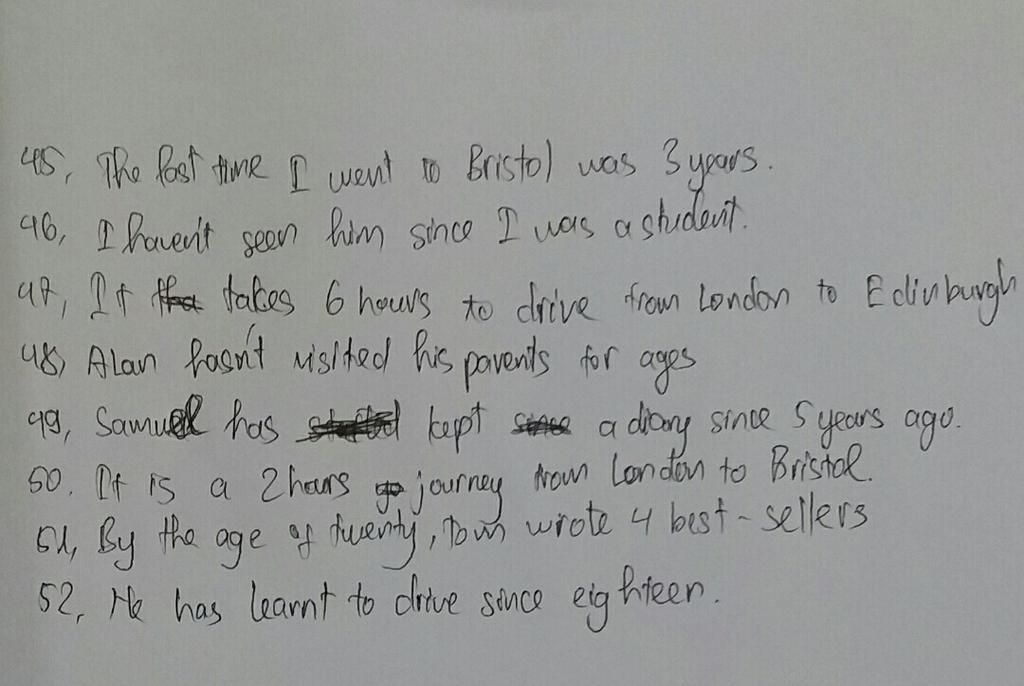 45, The last time I went to Bristol was 3 years.
46, I haven't seen him since I was a student.
47, It takes 6 hours to drive from London to Edinburgh
48, Alan hasn't visited his parents for ages
49, Samuel has kept a diary since 5 years ago.
50. It is a 2 hours journey from London to Bristol.
51, By the age of twenty, Tom wrote 4 best-sellers
52, He has learnt to drive since eighteen.